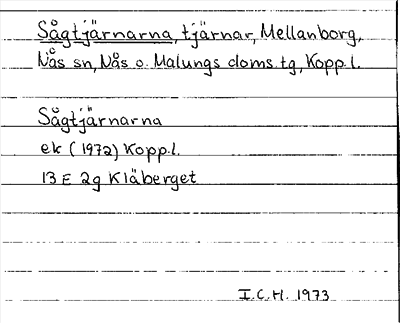 Sågtjärnarna, tjärnar, Mellanborg,
Nås sn, Nås o. Malungs doms.tg, Kopp.l.
Sågtjärnarna
ek (1972) Kopp.l.
13 E 2g Kläberget
I.C.H. 1973